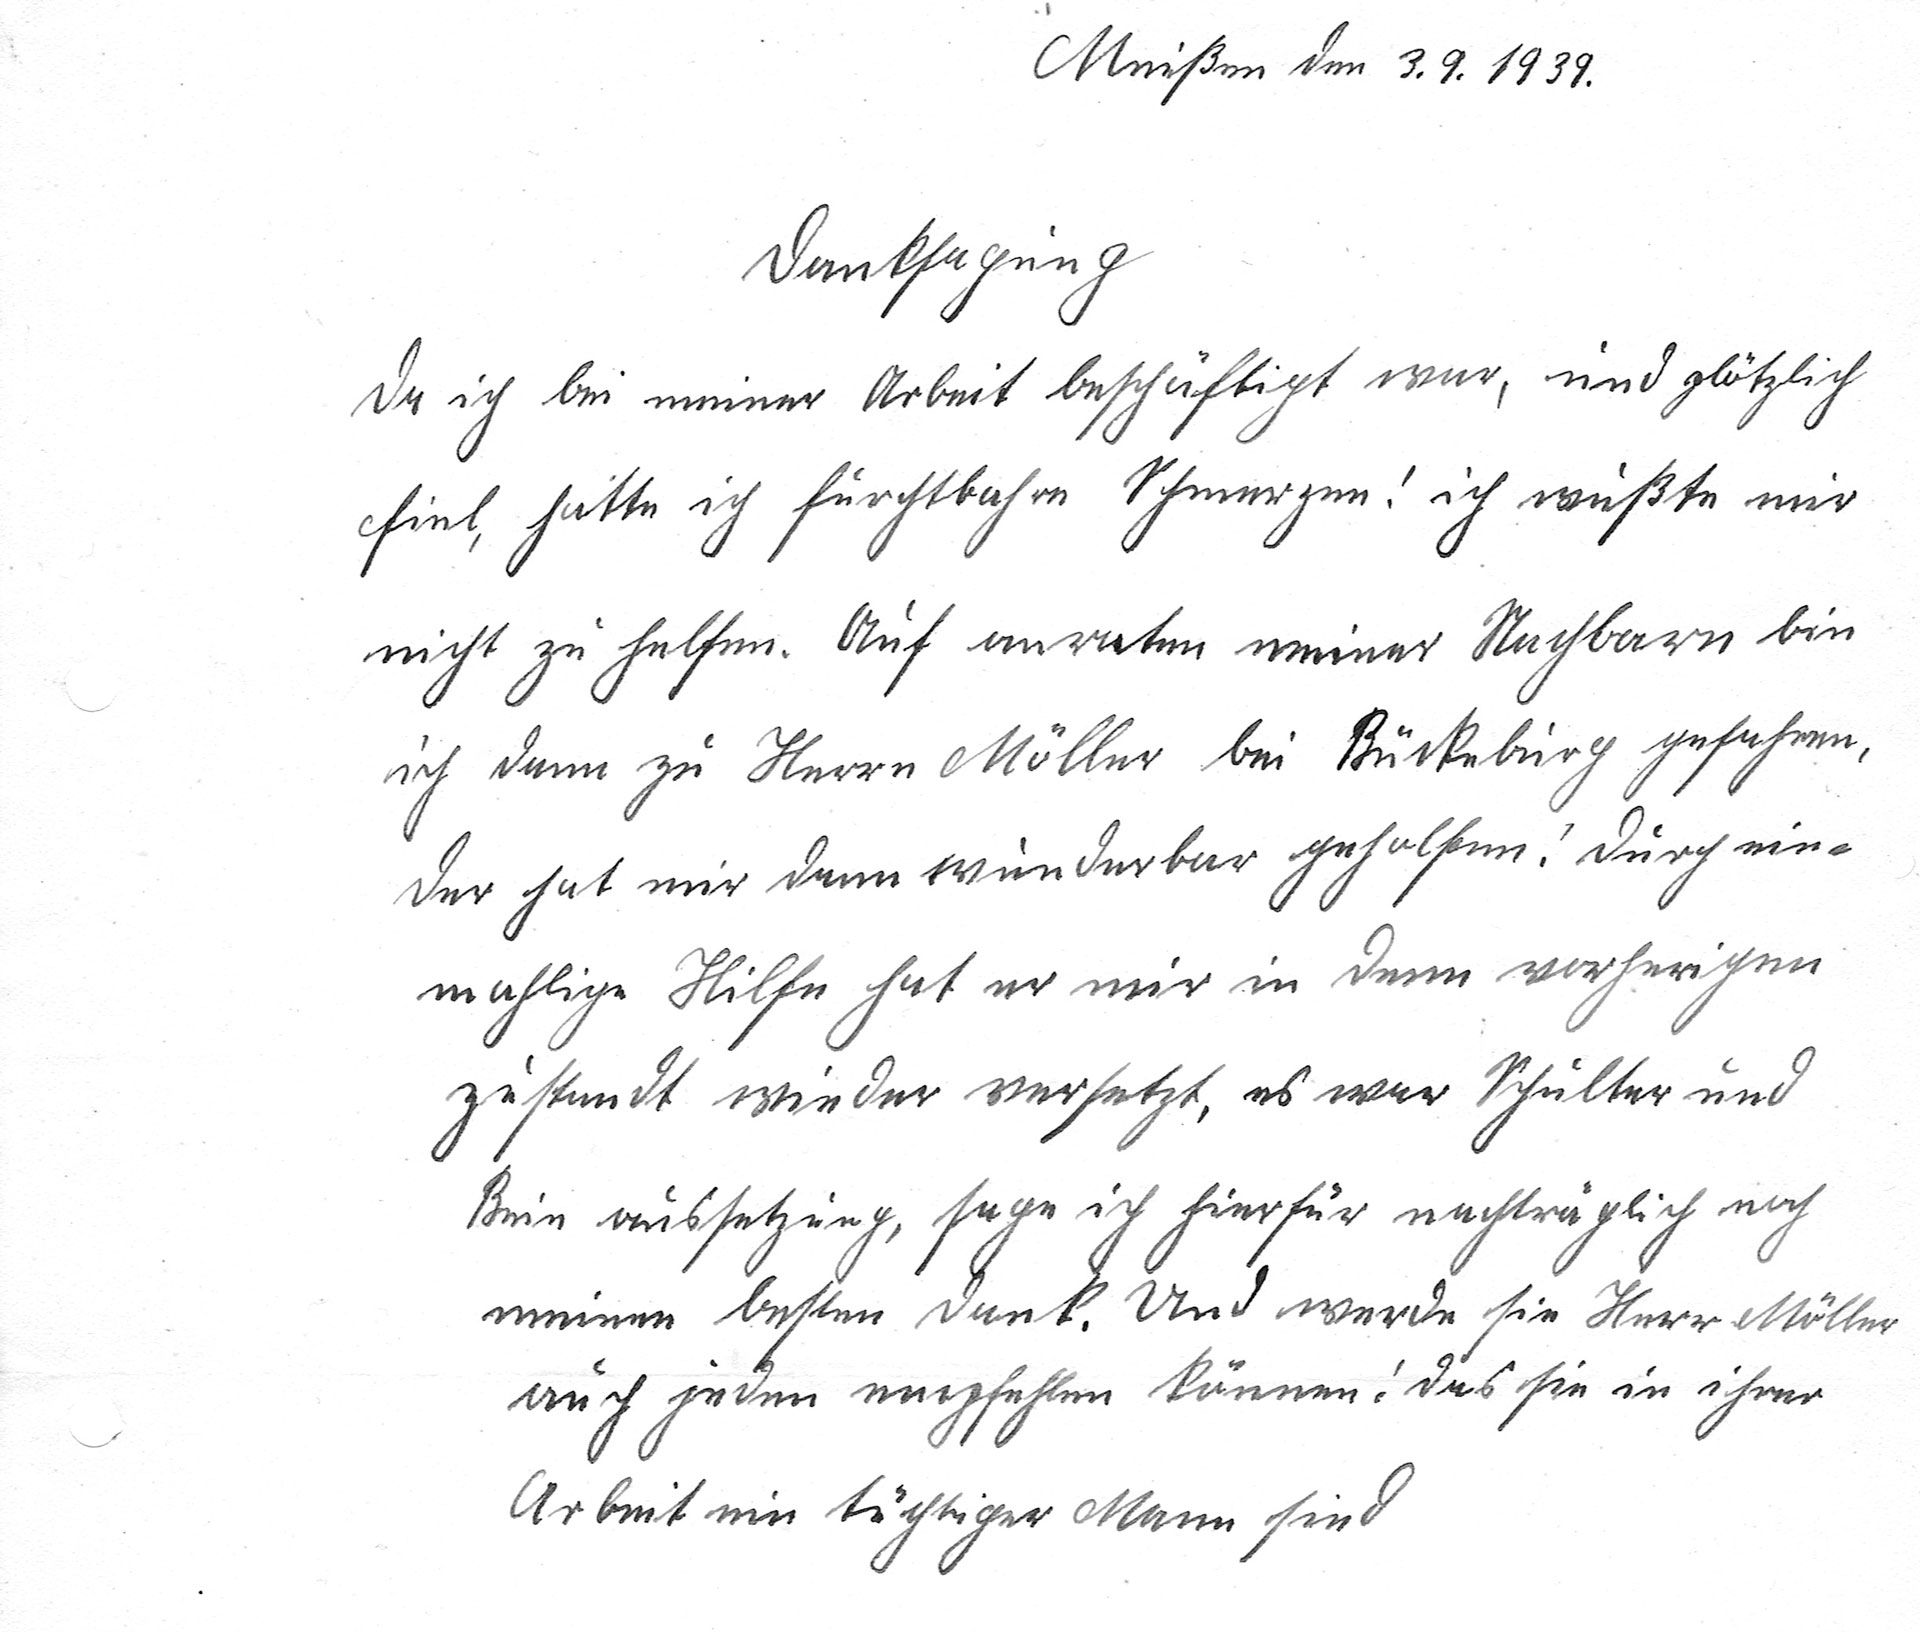 Meißen den 3.9.1939.
Danksagung
Da ich bei meiner Arbeit beschäftigt war, und plötzlich
fiel, hatte ich furchtbahre Schmerzen! ich wußte mir
nicht zu helfen. Auf anraten meiner Nachbarn bin
ich dann zu Herrn Möller bei Bückeburg gefahren,
der hat mir dann wunderbar geholfen! Durch ein=
mahlige Hilfe hat er mir in denn vorherigen
zustandt wieder versetzt, es war Schulter und
Bein aussetzung, sage ich hierfür nachträglich noch
meinen besten Dank. Und werde sie Herr Möller
auch jeden empfehlen können! das sie in ihrer
Arbeit ein tüchtiger Mann sind